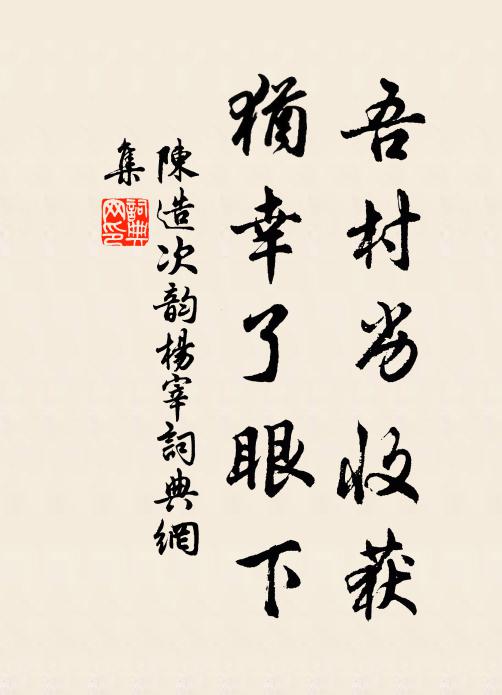 吾村劣收获
犹幸了眼下
陳造次韵楊宰詞典網
集
詞典網印